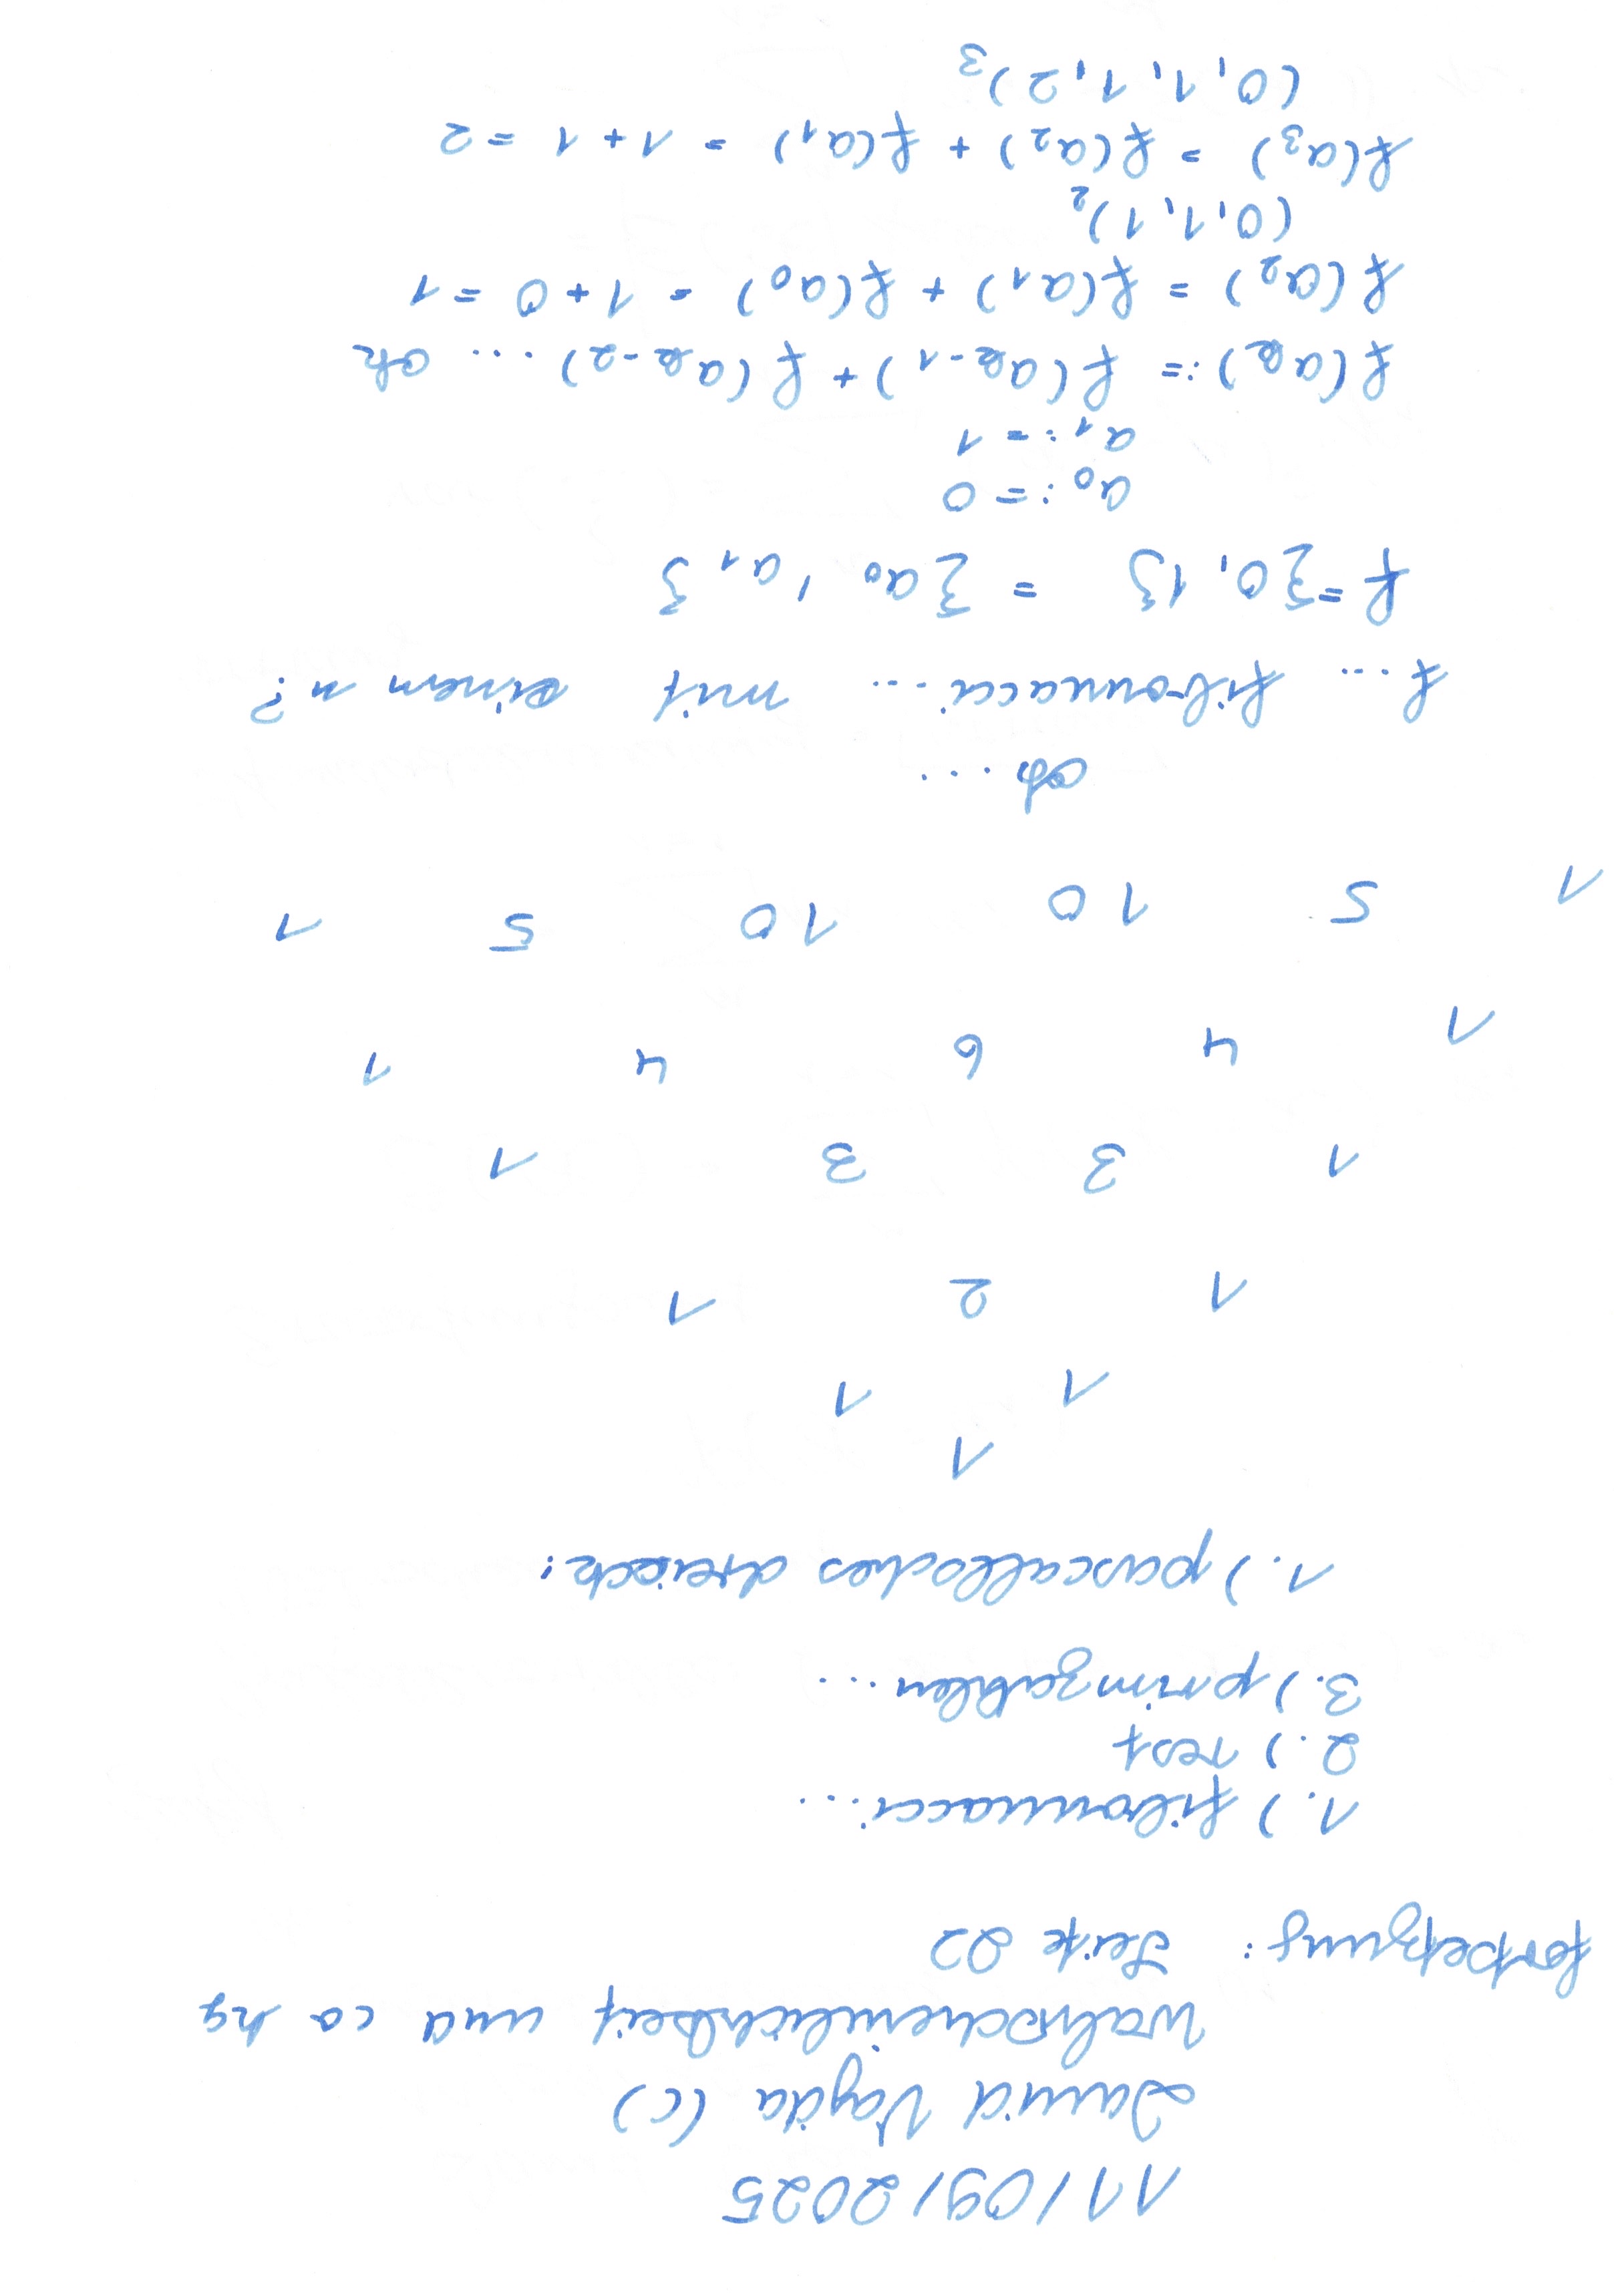 11/09/2025
David Vajda (c)
wahrscheinlichkeit und co kg
fortsetzung: Seite 22
1.) fibonnacci...
2.) rest
3.) primzahlen...
1.) pascalsches dreieck:
1
1 1
1 2 1
1 3 3 1
1 4 6 4 1
1 5 10 10 5 1
ok ...
f... fibonnacci... mit einem n?
f={0,1} = {a0, a1}
a0 := 0
a1 := 1
f(ak) := f(ak-1) + f(ak-2) ... ok
f(a2) = f(a1) + f(a0) = 1 + 0 = 1
(0,1,1)2
f(a3) = f(a2) + f(a1) = 1 + 1 = 2
(0,1,1,2)3